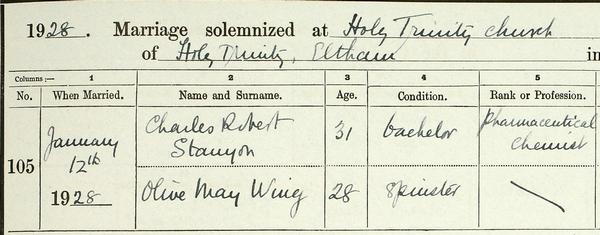 1928. Marriage solemnized at Holy Trinity Church
of Holy Trinity, Eltham in
Columns:— 1 2 3 4 5
No. When Married. Name and Surname. Age. Condition. Rank or Profession.
105 January 12th 1928
Charles Robert Stanyon 31 bachelor Pharmaceutical Chemist
Olive May Wing 28 Spinster